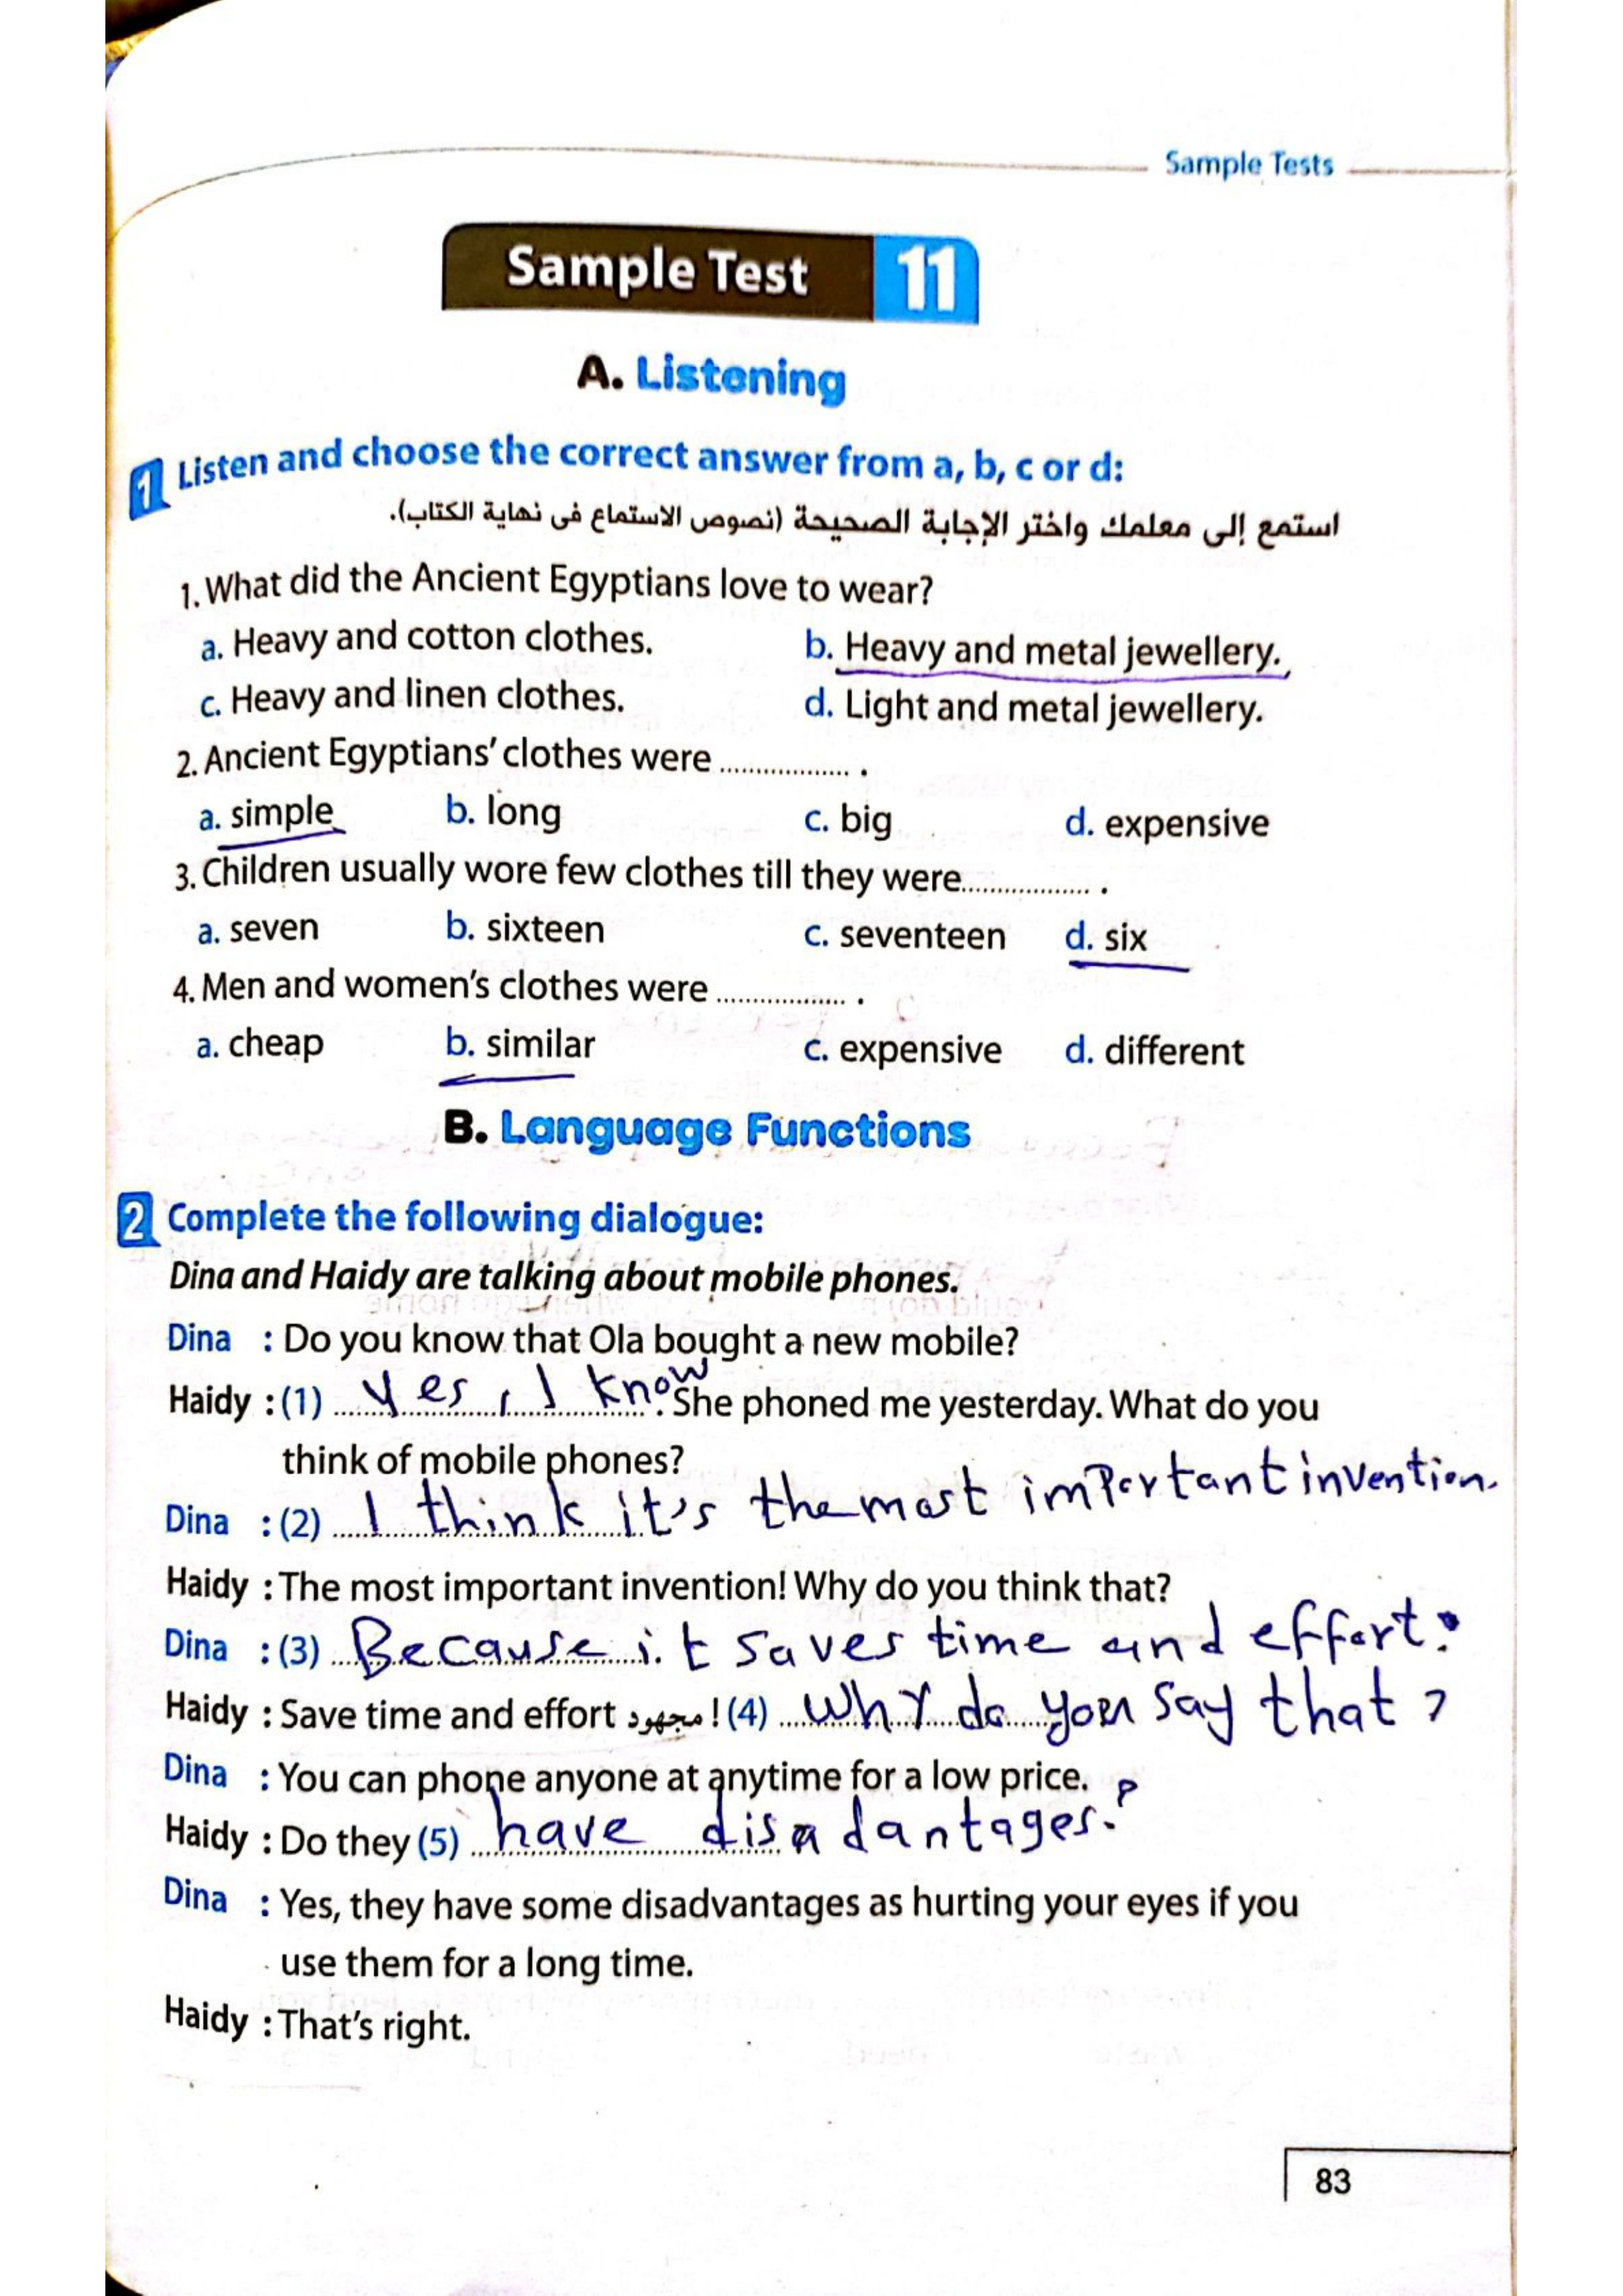 Sample Tests
Sample Test 11
A. Listening
1 Listen and choose the correct answer from a, b, c or d:
استمع إلى معلمك واختر الإجابة الصحيحة (نصوص الاستماع فى نهاية الكتاب).
1. What did the Ancient Egyptians love to wear?
a. Heavy and cotton clothes. b. Heavy and metal jewellery.
c. Heavy and linen clothes. d. Light and metal jewellery.
2. Ancient Egyptians' clothes were .................. .
a. simple b. long c. big d. expensive
3. Children usually wore few clothes till they were.................. .
a. seven b. sixteen c. seventeen d. six
4. Men and women's clothes were .................. .
a. cheap b. similar c. expensive d. different
B. Language Functions
2 Complete the following dialogue:
Dina and Haidy are talking about mobile phones.
Dina : Do you know that Ola bought a new mobile?
Haidy : (1) Yes, I know. She phoned me yesterday. What do you
think of mobile phones?
Dina : (2) I think it's the most important invention.
Haidy : The most important invention! Why do you think that?
Dina : (3) Because it saves time and effort.
Haidy : Save time and effort مجهود ! (4) Why do you say that ?
Dina : You can phone anyone at anytime for a low price.
Haidy : Do they (5) have disadantages.?
Dina : Yes, they have some disadvantages as hurting your eyes if you
use them for a long time.
Haidy : That's right.
83